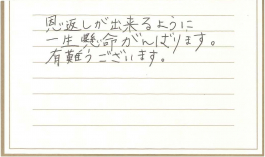 恩返しが出来るように
一生懸命がんばります。
有難うございます。